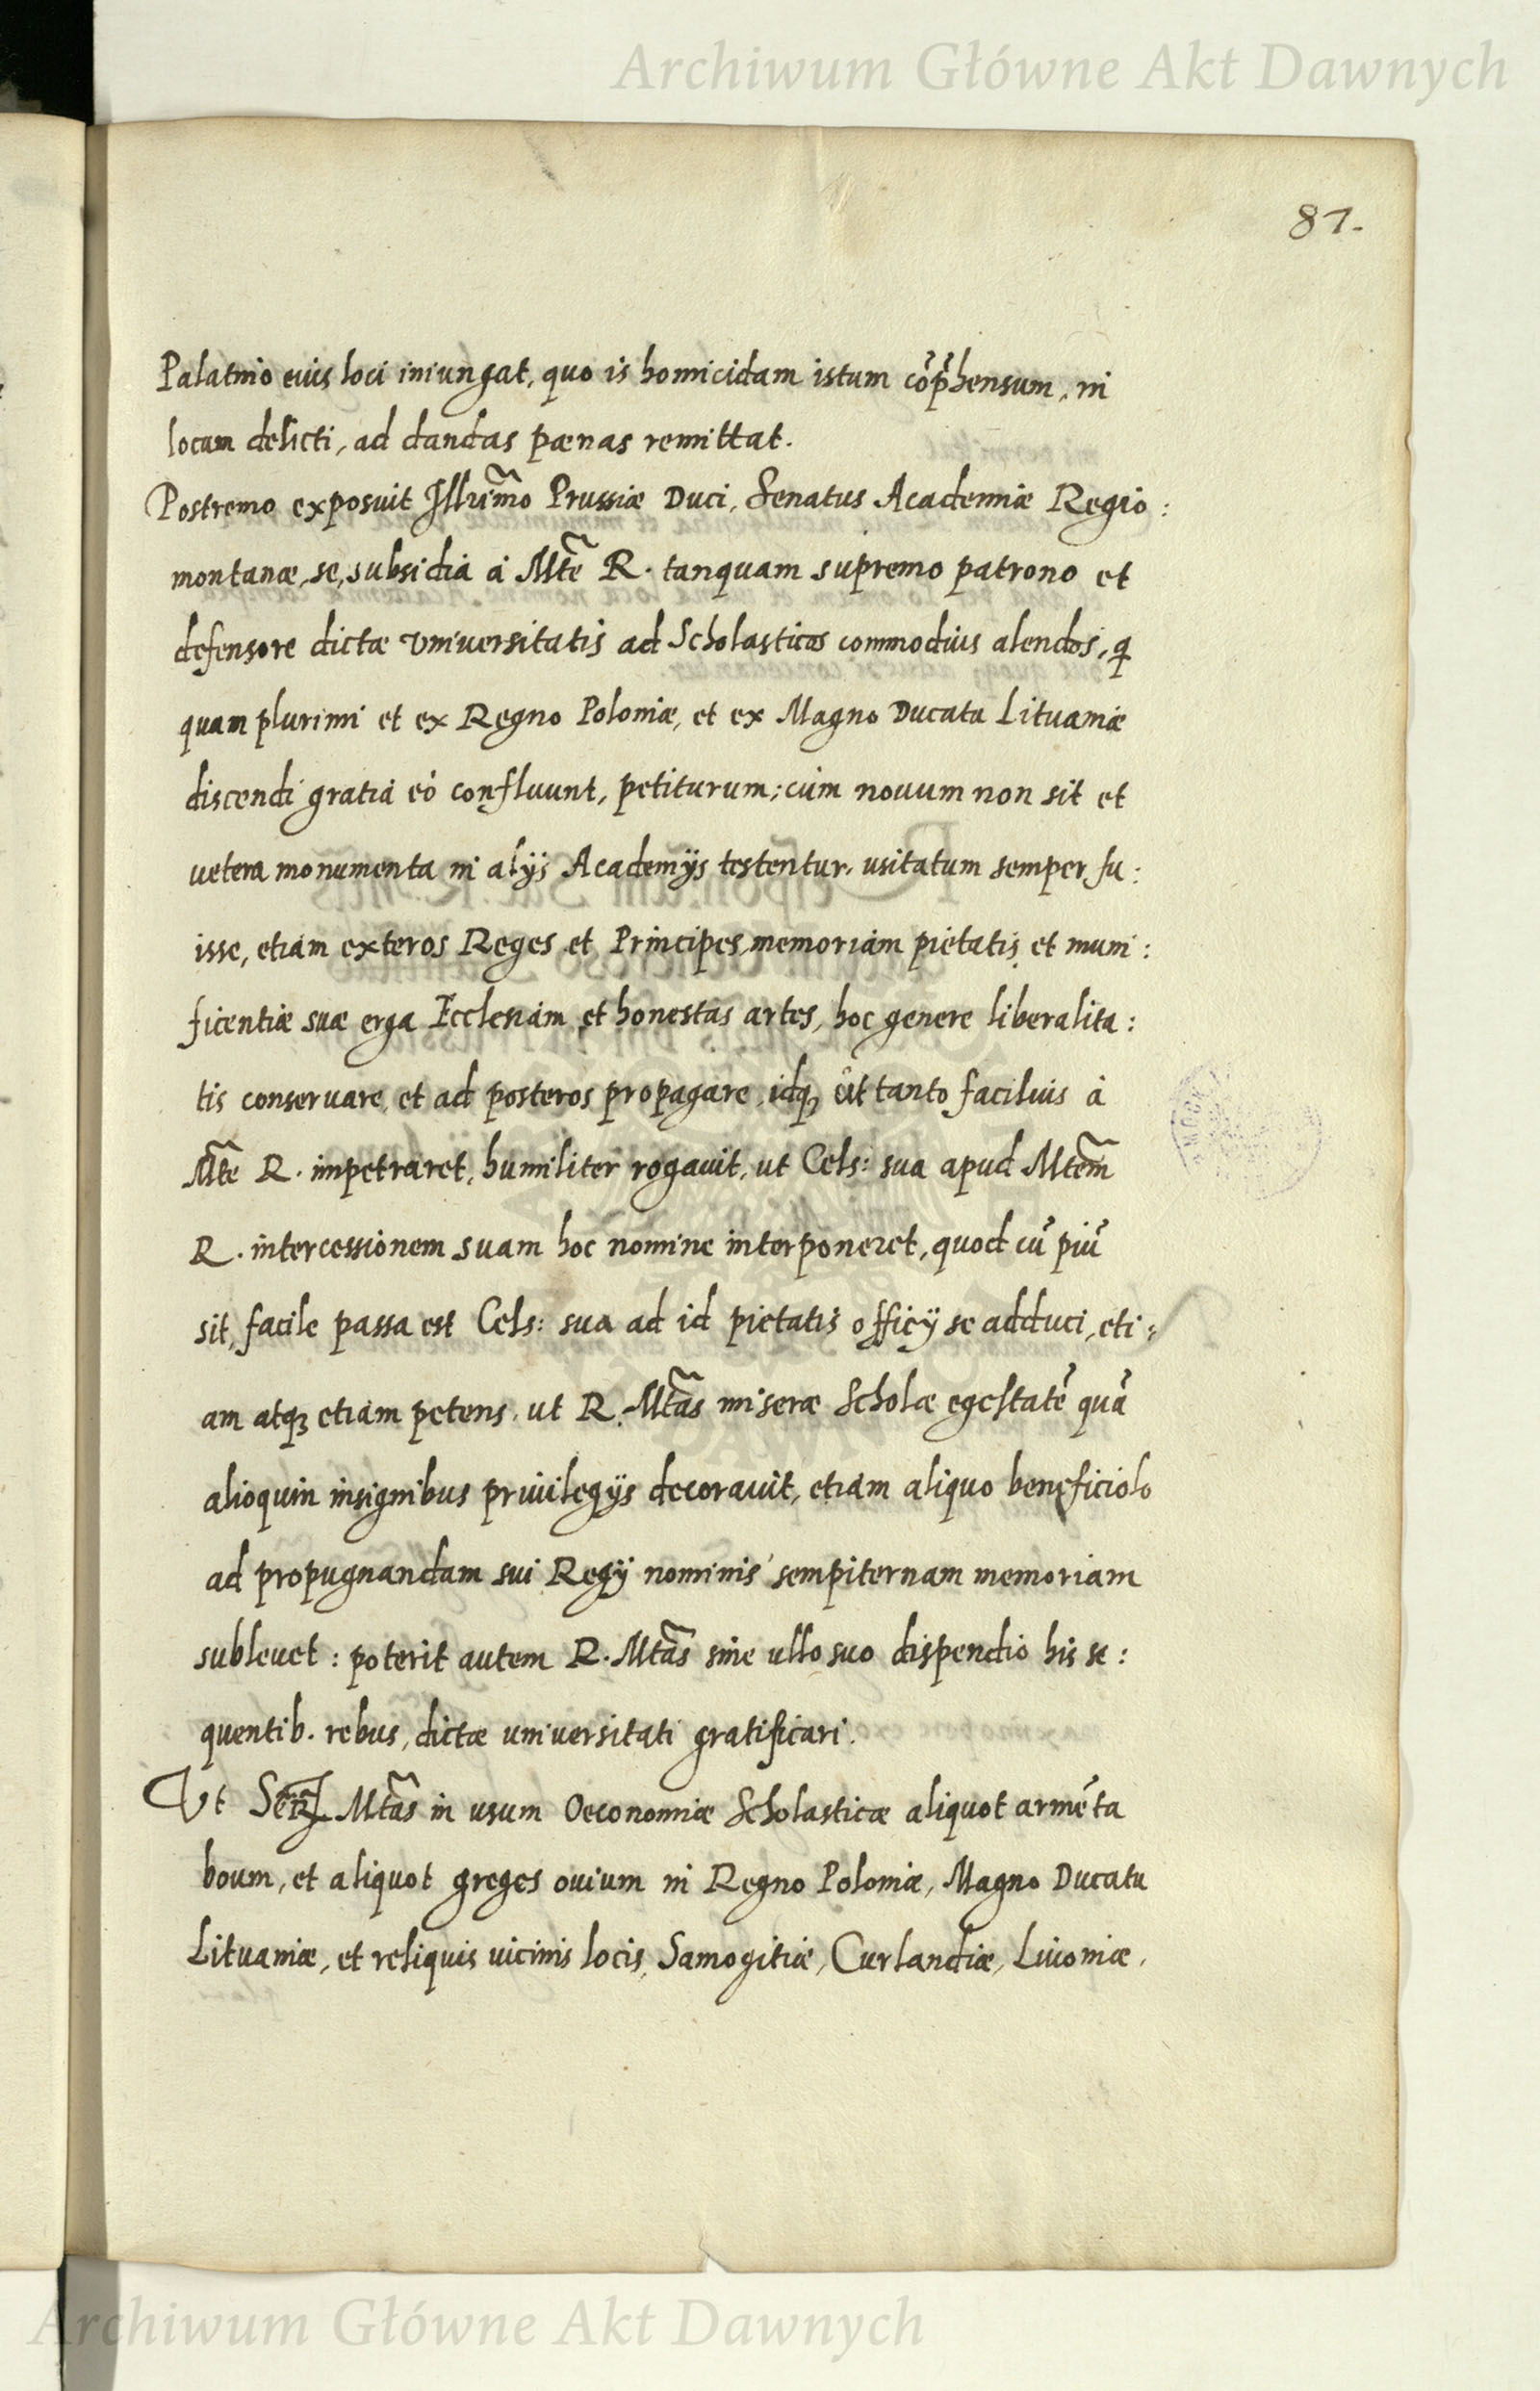 Archiwum Główne Akt Dawnych
87.
Palatino eius loci iniungat, quo is homicidam istum cõp̃hensum, in
locum delicti, ad dandas pænas remittat.
Postremo exposuit Illustr̃mo Prussiæ Duci, Senatus Academiæ Regio:
montanæ, se, subsidia à Mt̃e R. tanquam supremo patrono et
defensore dictæ Universitatis ad Scholasticos commodius alendos, q
quam plurimi et ex Regno Poloniæ, et ex Magno Ducatu Lituaniæ
discendi gratia eò confluunt, petiturum; cùm nouum non sit et
vetera monumenta in alijs Academijs testentur, usitatum semper fu:
isse, etiam exteros Reges et Principes, memoriam pietatis et muni:
ficentiæ suæ erga Ecclesiam et honestas artes, hoc genere liberalita:
tis conservare, et ad posteros propagare, idq; ut tanto facilius à
Mt̃e R. impetraret, humiliter rogauit, ut Cels: sua apud Mt̃em
R. intercessionem suam hoc nomine interponeret, quod cũ piũ
sit, facile passa est Cels: sua ad id pietatis officij se adduci, eti:
am atq; etiam petens, ut R. Mt̃as miseræ Scholæ egestatẽ quã
alioquin insignibus priuilegijs decorauit, etiam aliquo beneficiolo
ad propugnandam sui Regij nominis sempiternam memoriam
subleuet: poterit autem R. Mt̃as sine ullo suo dispendio his se:
quentib. rebus, dictæ universitati gratificari.
Ut Mt̃as in usum Oeconomiæ Scholasticæ aliquot armẽta
boum, et aliquot greges ouium in Regno Poloniæ, Magno Ducatu
Lituaniæ, et reliquis uicinis locis, Samogitiæ, Curlandiæ, Liuoniæ,
Archiwum Główne Akt Dawnych